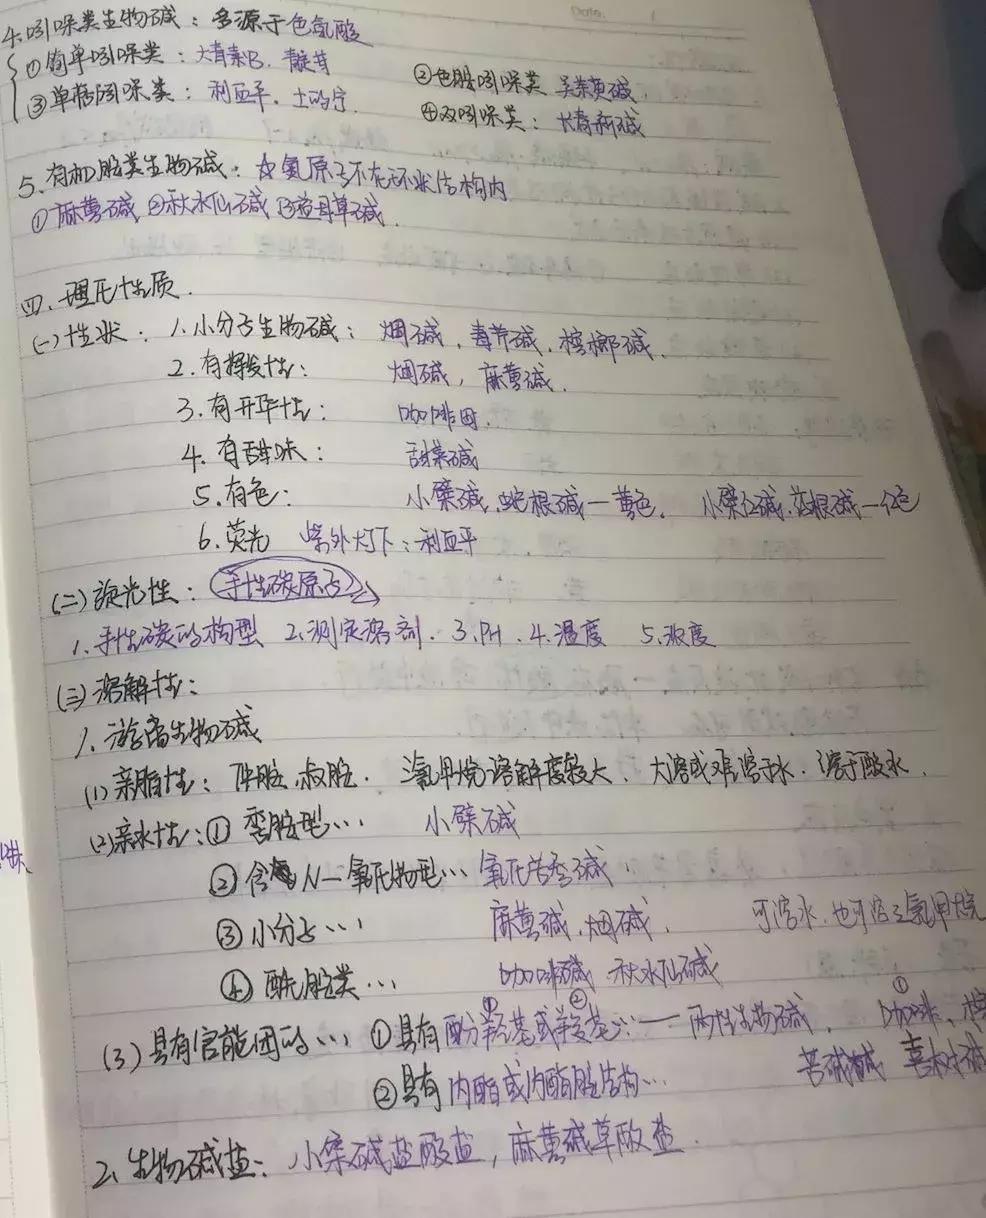 Date.
4.吲哚类生物碱：多源于色氨酸
①简单吲哚类：大青素B、靛苷 ②色胺吲哚类 吴茱萸碱
③单萜吲哚类：利血平、士的宁 ④双吲哚类：长春新碱
5.有机胺类生物碱：☆氮原子不在环状结构内
①麻黄碱 ②秋水仙碱 ③益母草碱
四、理化性质
(一)性状：1.小分子生物碱：烟碱、毒芹碱、槟榔碱
2.有挥发性：烟碱，麻黄碱
3.有升华性：咖啡因
4.有甜味：甜菜碱
5.有色：小檗碱、蛇根碱—黄色 小檗红碱、药根碱—红色
6.荧光 紫外灯下：利血平
(二)旋光性：手性碳原子
1.手性碳的构型 2.测定溶剂 3.PH 4.温度 5.浓度
(三)溶解性：
1.游离生物碱
(1)亲脂性：仲胺、叔胺. 三氯甲烷溶解度较大、不溶或难溶于水、溶于酸水
(2)亲水性：①季胺型… 小檗碱
②含 N—氧化物型… 氧化苦参碱
③小分子… 麻黄碱、烟碱 可溶水、也可溶三氯甲烷
④酰胺类… 咖啡碱 秋水仙碱
(3)具有官能团的… ①具有酚羟基或羧基…——两性生物碱
②具有内酯或内酰胺结构… 喜树碱
2、生物碱盐：小檗碱盐酸盐，麻黄碱草酸盐